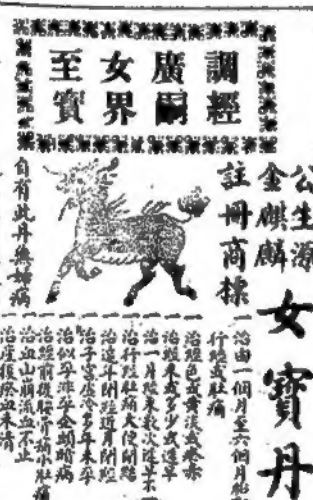 調經
廣嗣
女界
至寶
公生源
金麒麟
註冊商標
女寶丹
自有此丹無婦病
一治由一個月至六個月
行經或肚痛
一治經色或黃淡或紫赤
一治經來或多少或遲早
一治一月經來數次遲早不
一治行經肚痛大便閉結
一治遠年閉經近月閉經
一治子宮虛冷多年未孕
一治似孕非孕企頭晒病
一治經前後腰骨痛小肚痛
一治血山崩流血不止
一治產後瘀血未清